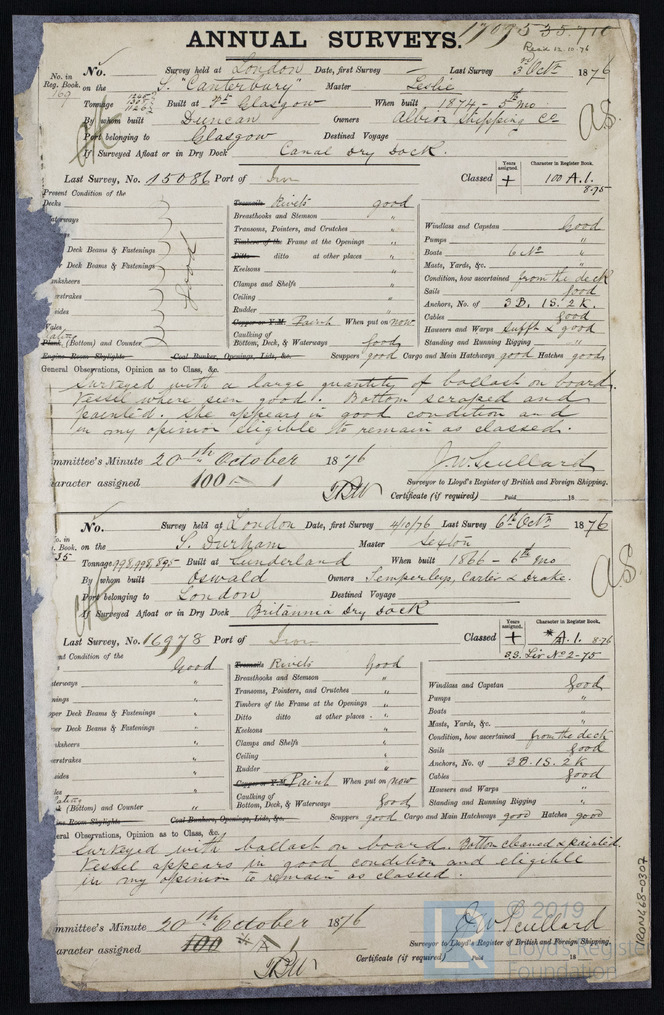 17095 35.710
Recd 12.10.76
ANNUAL SURVEYS.
No. in Reg. Book. 169
No. Survey held at London Date, first Survey — Last Survey 3rd Octr 1876
on the S. "Canterbury" Master Leslie
Tonnage Built at Pt Glasgow When built 1874 - 5th mo
By whom built Duncan Owners Albion Shipping Co
Port belonging to Glasgow Destined Voyage
If Surveyed Afloat or in Dry Dock Canal Dry Dock.
A.S.
Last Survey, No. 15086 Port of Iron Classed
Years assigned. Character in Register Book.
+ 100 A.1. 8.75
Present Condition of the
Decks
aterways
Deck Beams & Fastenings
Deck Beams & Fastenings
nksheers
erstrakes
sides
Wales
Plank, (Bottom) and Counter
Good
Engine Room Skylights Coal Bunker, Openings, Lids, &c.
Treenails Rivets good
Breasthooks and Stemson "
Transoms, Pointers, and Crutches "
Timbers of the Frame at the Openings "
Ditto ditto at other places "
Keelsons "
Clamps and Shelfs "
Ceiling "
Rudder "
Copper or Y.M. Paint When put on now
Caulking of Bottom, Deck, & Waterways good
Windlass and Capstan Good
Pumps "
Boats 6 No "
Masts, Yards, &c. "
Condition, how ascertained from the deck
Sails good
Anchors, No. of 3 B. 1 S. 2 K.
Cables good
Hawsers and Warps Sufft & good
Standing and Running Rigging "
Scuppers good Cargo and Main Hatchways good Hatches good
General Observations, Opinion as to Class, &c.
Surveyed with a large quantity of ballast on board.
Vessel where seen good. Bottom scraped and
painted. She appears in good condition and
in my opinion eligible to remain as classed.
mmittee's Minute 20th October 1876
aracter assigned 100 A 1
J.W. Scullard
Surveyor to Lloyd's Register of British and Foreign Shipping.
Certificate (if required) Paid 18
No. Survey held at London Date, first Survey 4/10/76 Last Survey 6th Octr 1876
o. in . Book. 35
on the S. Durham Master Sexton
Tonnage 998,998,895 Built at Sunderland When built 1866 - 6th mo
By whom built Oswald Owners Temperleys, Carter & Drake.
Port belonging to London Destined Voyage
If Surveyed Afloat or in Dry Dock Britannia Dry Dock
A.S.
Last Survey, No. 16978 Port of Iron Classed
Years assigned. Character in Register Book.
+ *A.1. 8-76
S.S. Liv No 2-75
nt Condition of the
Good
aterways "
nings "
pper Deck Beams & Fastenings "
er Deck Beams & Fastenings "
nksheers "
erstrakes "
sides "
"
(Bottom) and Counter "
ine Room Skylights Coal Bunkers, Openings, Lids, &c.
Treenails Rivets Good
Breasthooks and Stemson "
Transoms, Pointers, and Crutches "
Timbers of the Frame at the Openings "
Ditto ditto at other places "
Keelsons "
Clamps and Shelfs "
Ceiling "
Rudder "
Copper or Y.M. Paint When put on now
Caulking of Bottom, Deck, & Waterways Good
Windlass and Capstan Good
Pumps "
Boats "
Masts, Yards, &c. "
Condition, how ascertained from the deck
Sails good
Anchors, No. of 3 B. 1 S. 2 K
Cables good
Hawsers and Warps "
Standing and Running Rigging "
Scuppers good Cargo and Main Hatchways good Hatches good
eral Observations, Opinion as to Class, &c.
Surveyed with ballast on board. Bottom cleaned & painted.
Vessel appears in good condition and eligible
in my opinion to remain as classed.
mmittee's Minute 20th October 1876
aracter assigned 100 A 1
J W Scullard
Surveyor to Lloyd's Register of British and Foreign Shipping.
Certificate (if required) Paid 18
IRON468-0307
© 2019
Lloyd's Register
Foundation